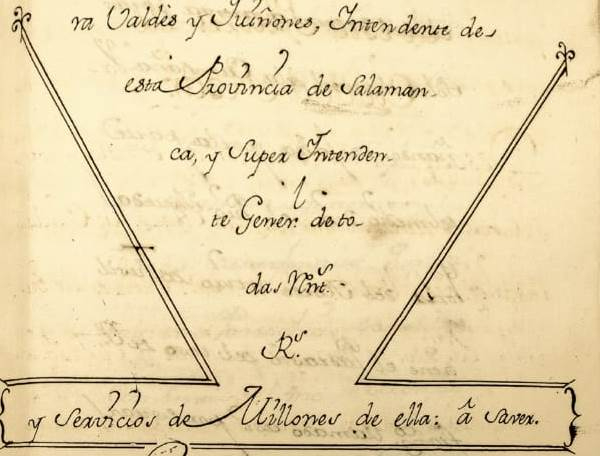 ra Valdès y Quiñones, Intendente de
esta Provincia de Salaman-
ca, y Super Intenden-
te Gener.l de to-
das Rnt.s
R.s
y Servicios de Millones de ella: â saver.